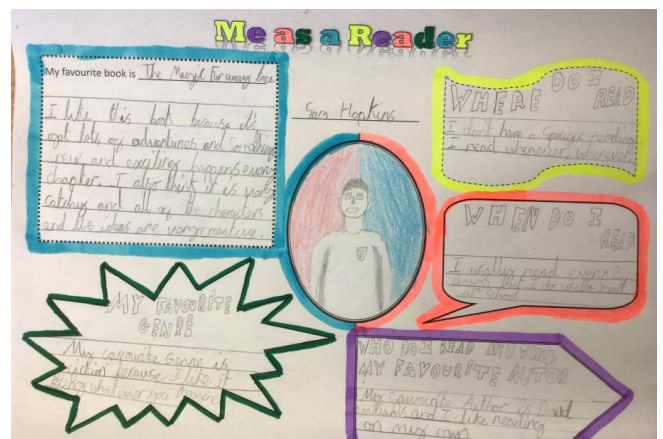 Me as a Reader
My favourite book is The Magic Faraway tree
I like this book because it's
got lots of adventures and something
new and exciting happens every
chapter. I also think it is really
catchy and all of the characters
and the ideas are very creative.
Sam Hopkins
WHERE DO I
READ
I don't have a reading
I read whenever, wherever.
WHEN DO I
READ
I usually read every
days but I do
at school
MY FAVOURITE
GENRE
My favourite Genre is
fiction because I like it
WHO DO I READ AND WHOS
MY FAVOURITE AUTOR
My favourite Author is David
williams and I like reading
on my own